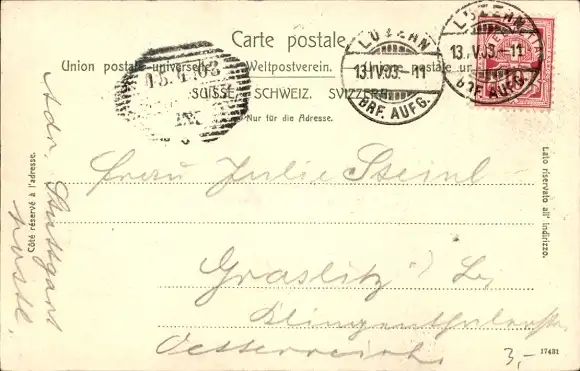 Carte postale
Union postale universelle. Weltpostverein. Unione postale
SUISSE. SCHWEIZ. SVIZZERA.
Nur für die Adresse.
LUZERN
13.IV.03.-11
BRF. AUFG.
LUZERN
13.IV.03.-11
BRF. AUFG.
Côté réservé à l'adresse.
Lato riservato all' indirizzo.
Frau Julie Steinl
Graslitz
Klingenthalerstr
Oesterreich.
Adr. Stuttgart
postl.
3,-
17431